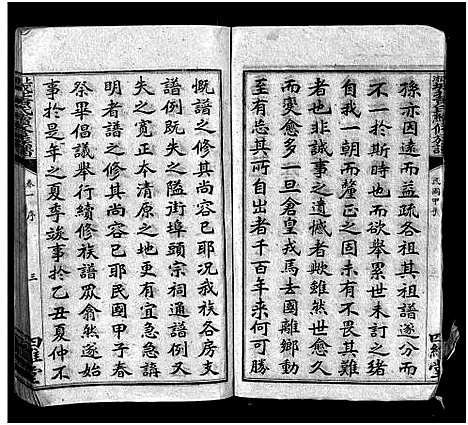 孫亦因遠而益疏各祖祖譜遂分而
不一於斯時也欲舉累世未訂之緒
自我一朝而釐正之未有不畏其難
者也非誠事之遺憾者歟雖然世愈久
至有感慨至一旦倉皇戎馬去國離鄉動
於是地出者千百年來何可勝
慨譜之修其尚容已耶況我族各房支
譜例既失之隘街埠頭宗祠通譜例又
失之寬正本清原之地更有宜急急講
明者譜之修其尚容已耶民國甲子春
祭畢倡議舉行續修族譜眾俞然遂始
事於是年之夏季竣事於乙丑夏仲不
卷一 序
三
四維堂
民國甲子
四維堂